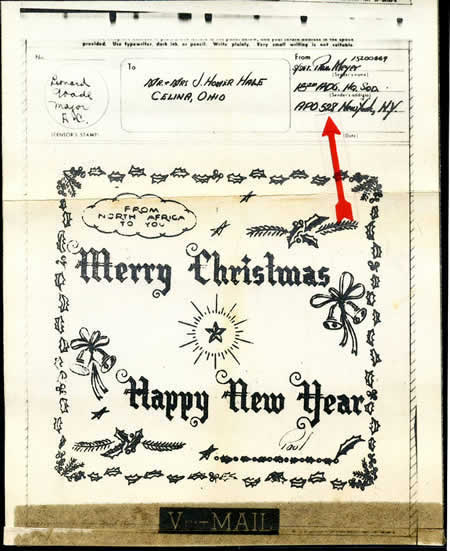 provided. Use typewriter, dark ink or pencil. Write plainly. Very small writing is not suitable.
No.
To
From
15200869
Paul Meyer
(Sender's name)
Mr. & Mrs J. Homer Hale
Celina, Ohio
Hq. Sqd.
(Sender's address)
APO 528 New York, N.Y.
(Date)
Major
A.C.
(CENSOR'S STAMP)
FROM
NORTH AFRICA
TO YOU
Merry Christmas
Happy New Year
Paul
V···-MAIL